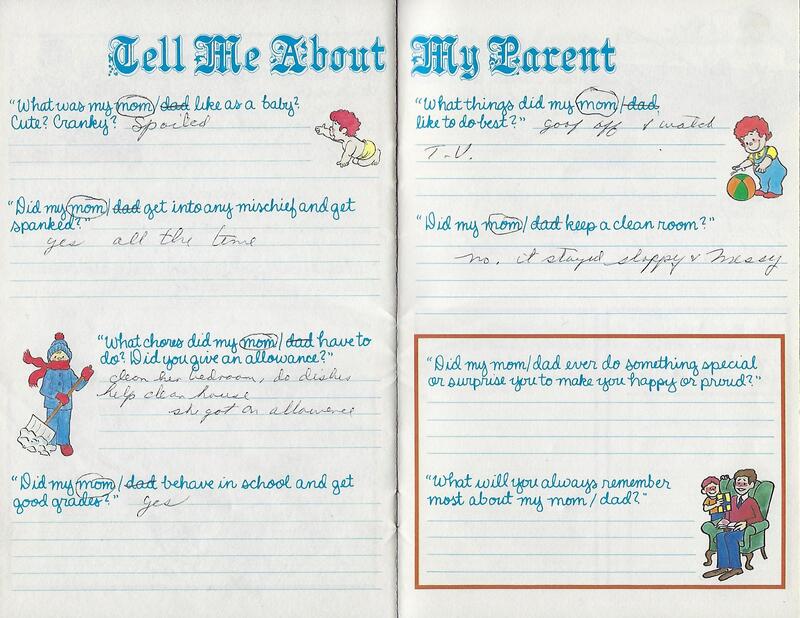 Tell Me About My Parent
"What was my mom/dad like as a baby?
Cute? Cranky? Spoiled
"Did my mom/dad get into any mischief and get
spanked?"
yes all the time
"What chores did my mom/dad have to
do? Did you give an allowance?"
clean her bedroom, do dishes
help clean house
she got an allowence
"Did my mom/dad behave in school and get
good grades?" yes
"What things did my mom/dad
like to do best?" goof off & watch
T.V.
"Did my mom/dad keep a clean room?"
no, it stayed sloppy & messy
"Did my mom/dad ever do something special
or surprise you to make you happy or proud?"
"What will you always remember
most about my mom/dad?"